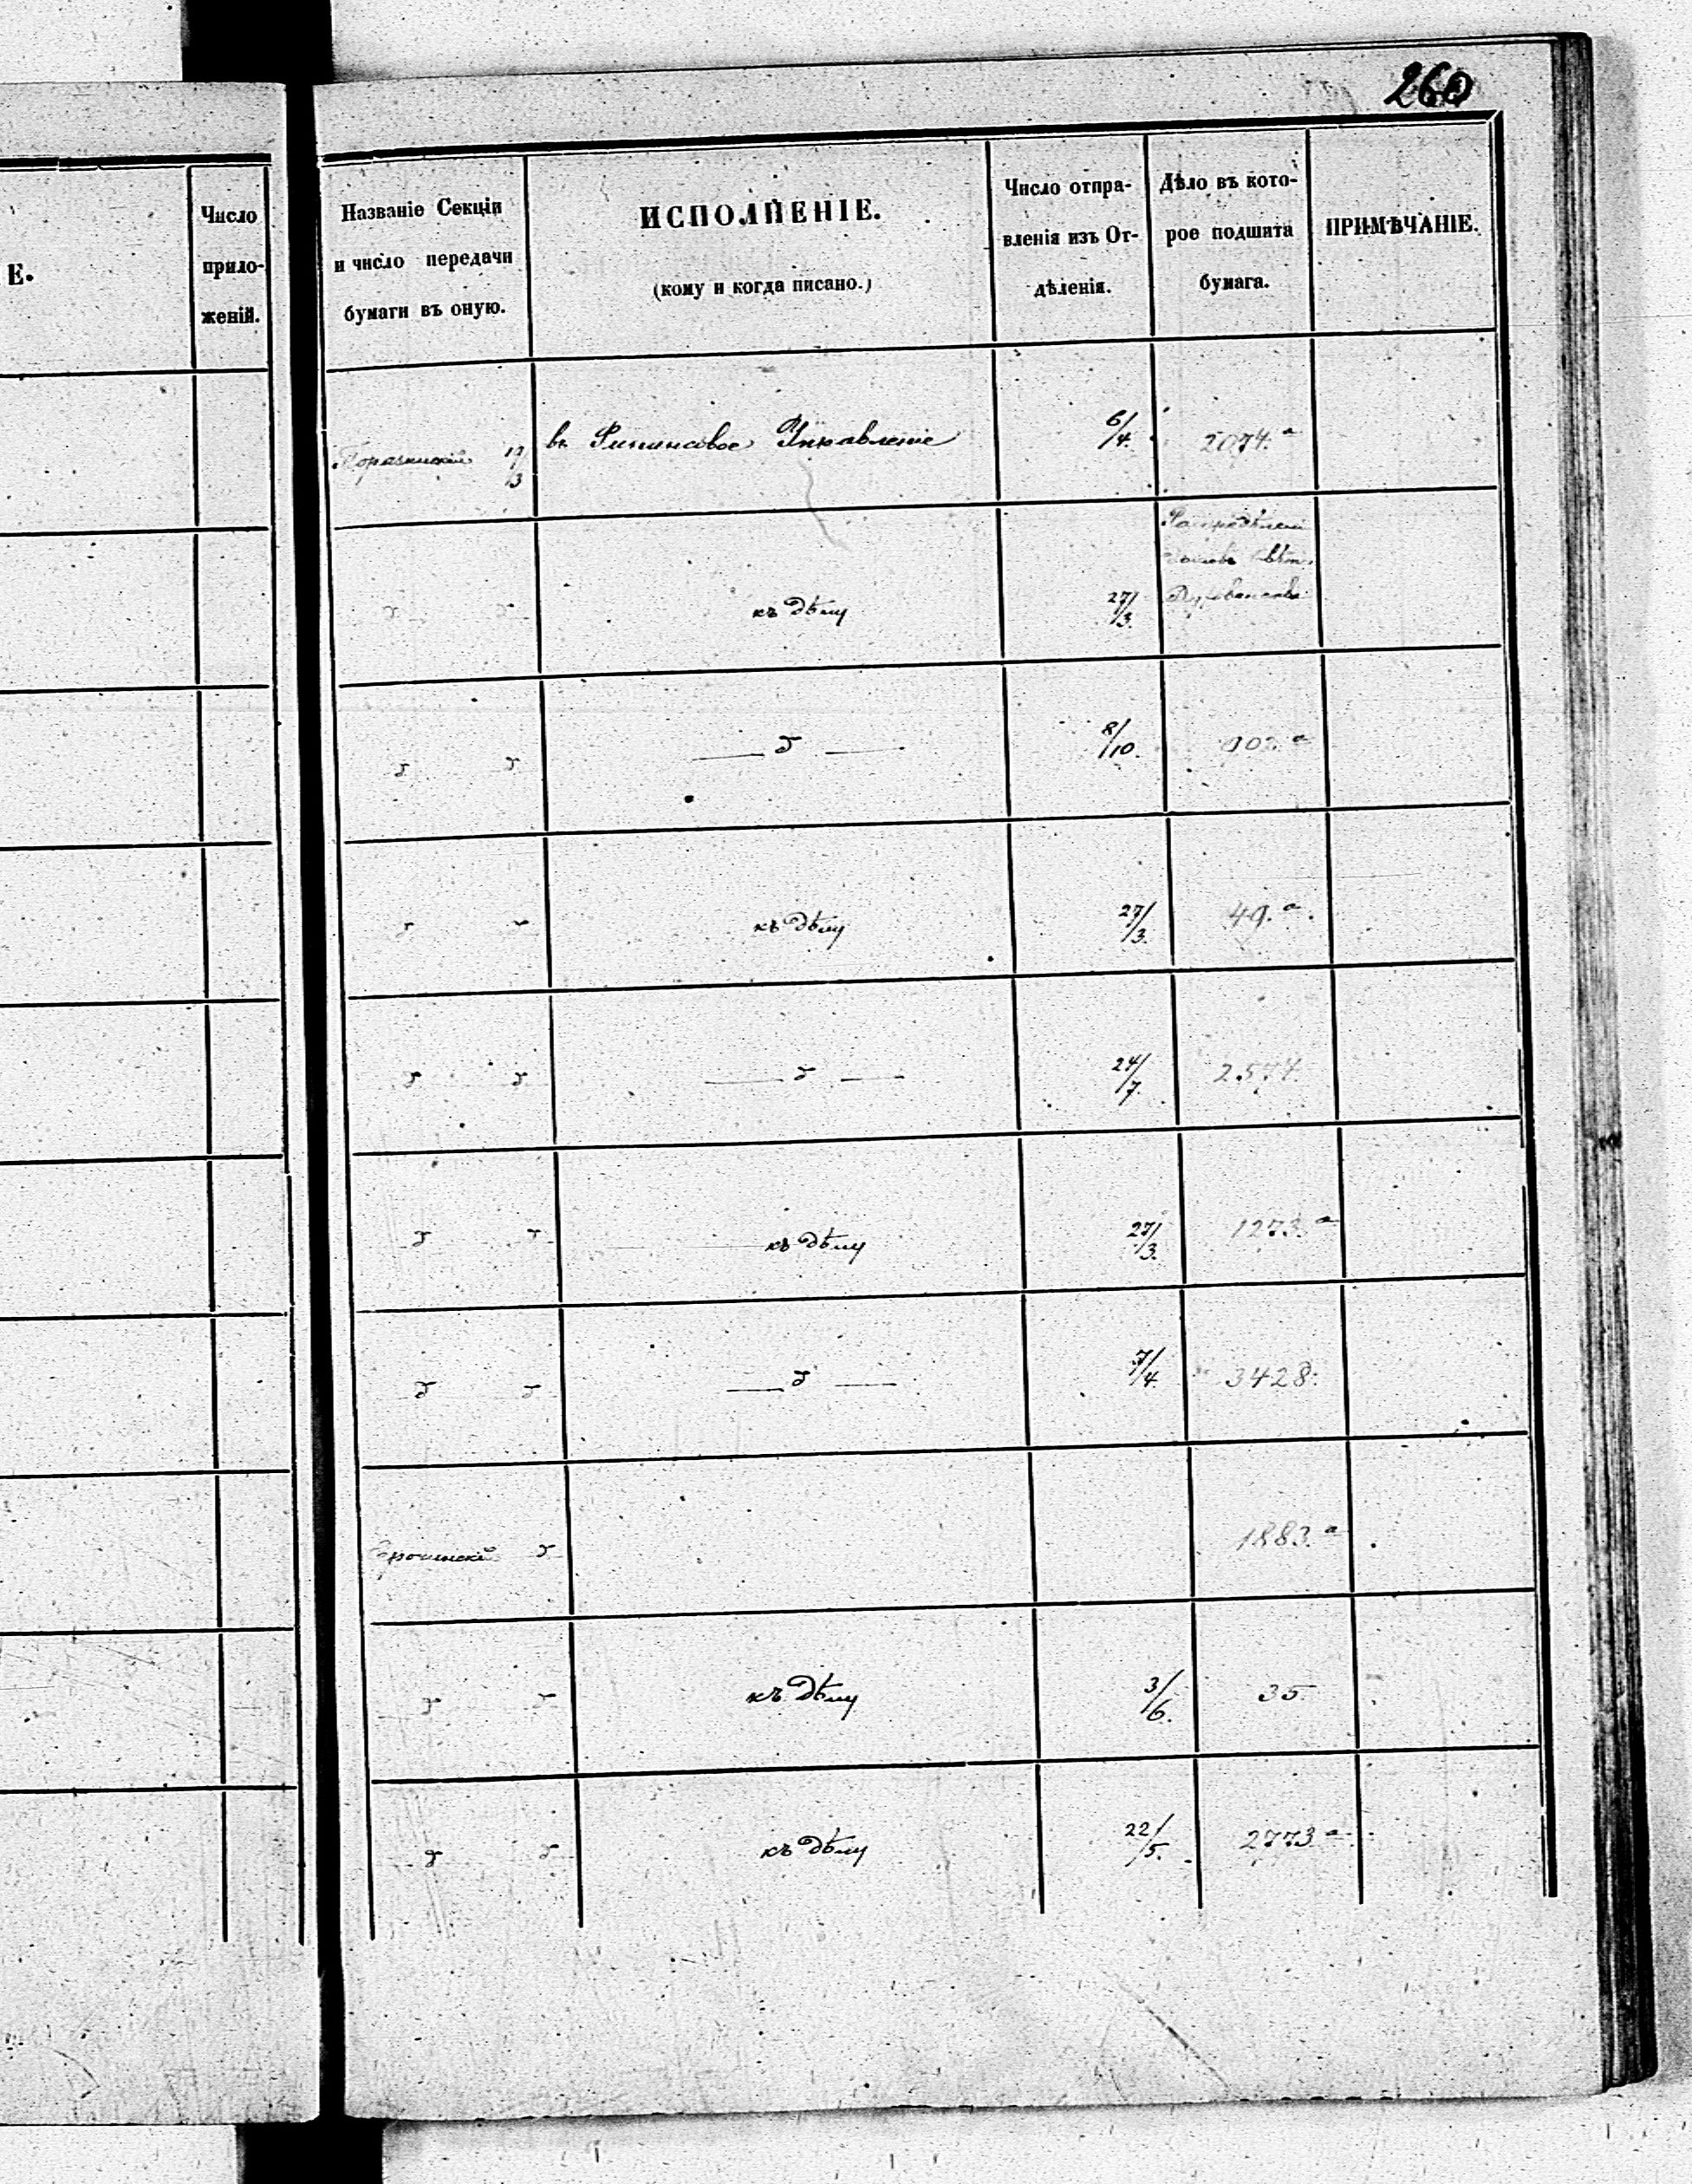 260
Е.
Число
прило-
женій.
Названіе Секціи
и число передачи
бумаги въ оную.
ИСПОЛНЕНІЕ.
(кому и когда писано.)
Число отпра-
вленія изъ От-
дѣленія.
Дѣло въ кото-
рое подшита
бумага.
ПРИМѢЧАНІЕ.
19/3 въ Финансовое Управленіе 6/4. 2074.а
къ дѣлу 27/3.
— д — 8/10.
къ дѣлу 27/3. 49.а
— д — 24/7. 2574.
къ дѣлу 27/3. 1273.а
— д — 7/4. 3428.
1883.а
къ дѣлу 3/6. 35.
къ дѣлу 22/5. 2773а